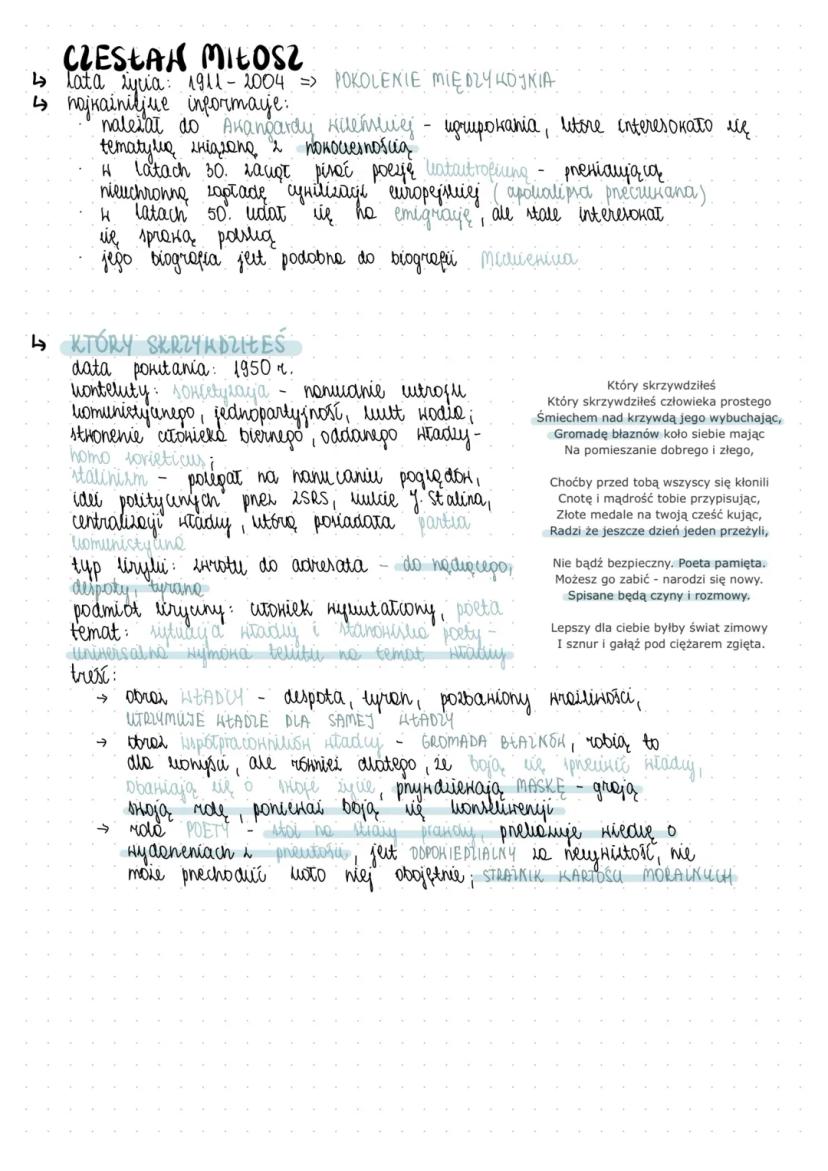 CZESŁAW MIŁOSZ
↳ lata życia: 1911 - 2004 => POKOLENIE MIĘDZYWOJNIA
↳ najważniejsze informacje:
· należał do Awangardy Wileńskiej - ugrupowania, które interesowało się
tematyką związaną z nowoczesnością
· w latach 30. zaczął pisać poezję katastroficzną - przewidującą
nieuchronną zagładę cywilizacji europejskiej (apokalipsa przeczuwana)
· w latach 50. udał się na emigrację, ale stale interesował
się sprawą polską
· jego biografia jest podobna do biografii Mickiewicza
↳ KTÓRY SKRZYWDZIŁEŚ
data powstania: 1950 r.
konteksty: sowietyzacja - narzucanie ustroju
komunistycznego, jednopartyjność, kult wodza;
stworzenie człowieka biernego, oddanego władzy -
homo sovieticus;
stalinizm - polegał na narzucaniu poglądów,
idei politycznych przez ZSRS, kulcie J. Stalina,
centralizacji władzy, którą posiadała partia
komunistyczna
typ liryki: zwrotu do adresata - do rządzącego,
despoty, tyrana
podmiot liryczny: człowiek wykształcony, poeta
temat: sytuacja władzy i stanowisko poety -
uniwersalna wymowa tekstu na temat władzy
treść:
→ obraz WŁADCY - despota, tyran, pozbawiony wrażliwości,
UTRZYMUJE WŁADZE DLA SAMEJ WŁADZY
→ obraz współpracowników władzy - GROMADA BŁAZNÓW, robią to
dla korzyści, ale również dlatego, że boją się sprzeciwić władzy,
obawiają się o swoje życie, przywdziewają MASKĘ - grają
swoją rolę, ponieważ boją się konsekwencji
→ rola POETY - stoi na straży prawdy, przekazuje wiedzę o
wydarzeniach z przeszłości, jest ODPOWIEDZIALNY za rzeczywistość, nie
może przechodzić koło niej obojętnie; STRAŻNIK WARTOŚCI MORALNYCH
Który skrzywdziłeś
Który skrzywdziłeś człowieka prostego
Śmiechem nad krzywdą jego wybuchając,
Gromadę błaznów koło siebie mając
Na pomieszanie dobrego i złego,
Choćby przed tobą wszyscy się kłonili
Cnotę i mądrość tobie przypisując,
Złote medale na twoją cześć kując,
Radzi że jeszcze dzień jeden przeżyli,
Nie bądź bezpieczny. Poeta pamięta.
Możesz go zabić - narodzi się nowy.
Spisane będą czyny i rozmowy.
Lepszy dla ciebie byłby świt zimowy
I sznur i gałąź pod ciężarem zgięta.